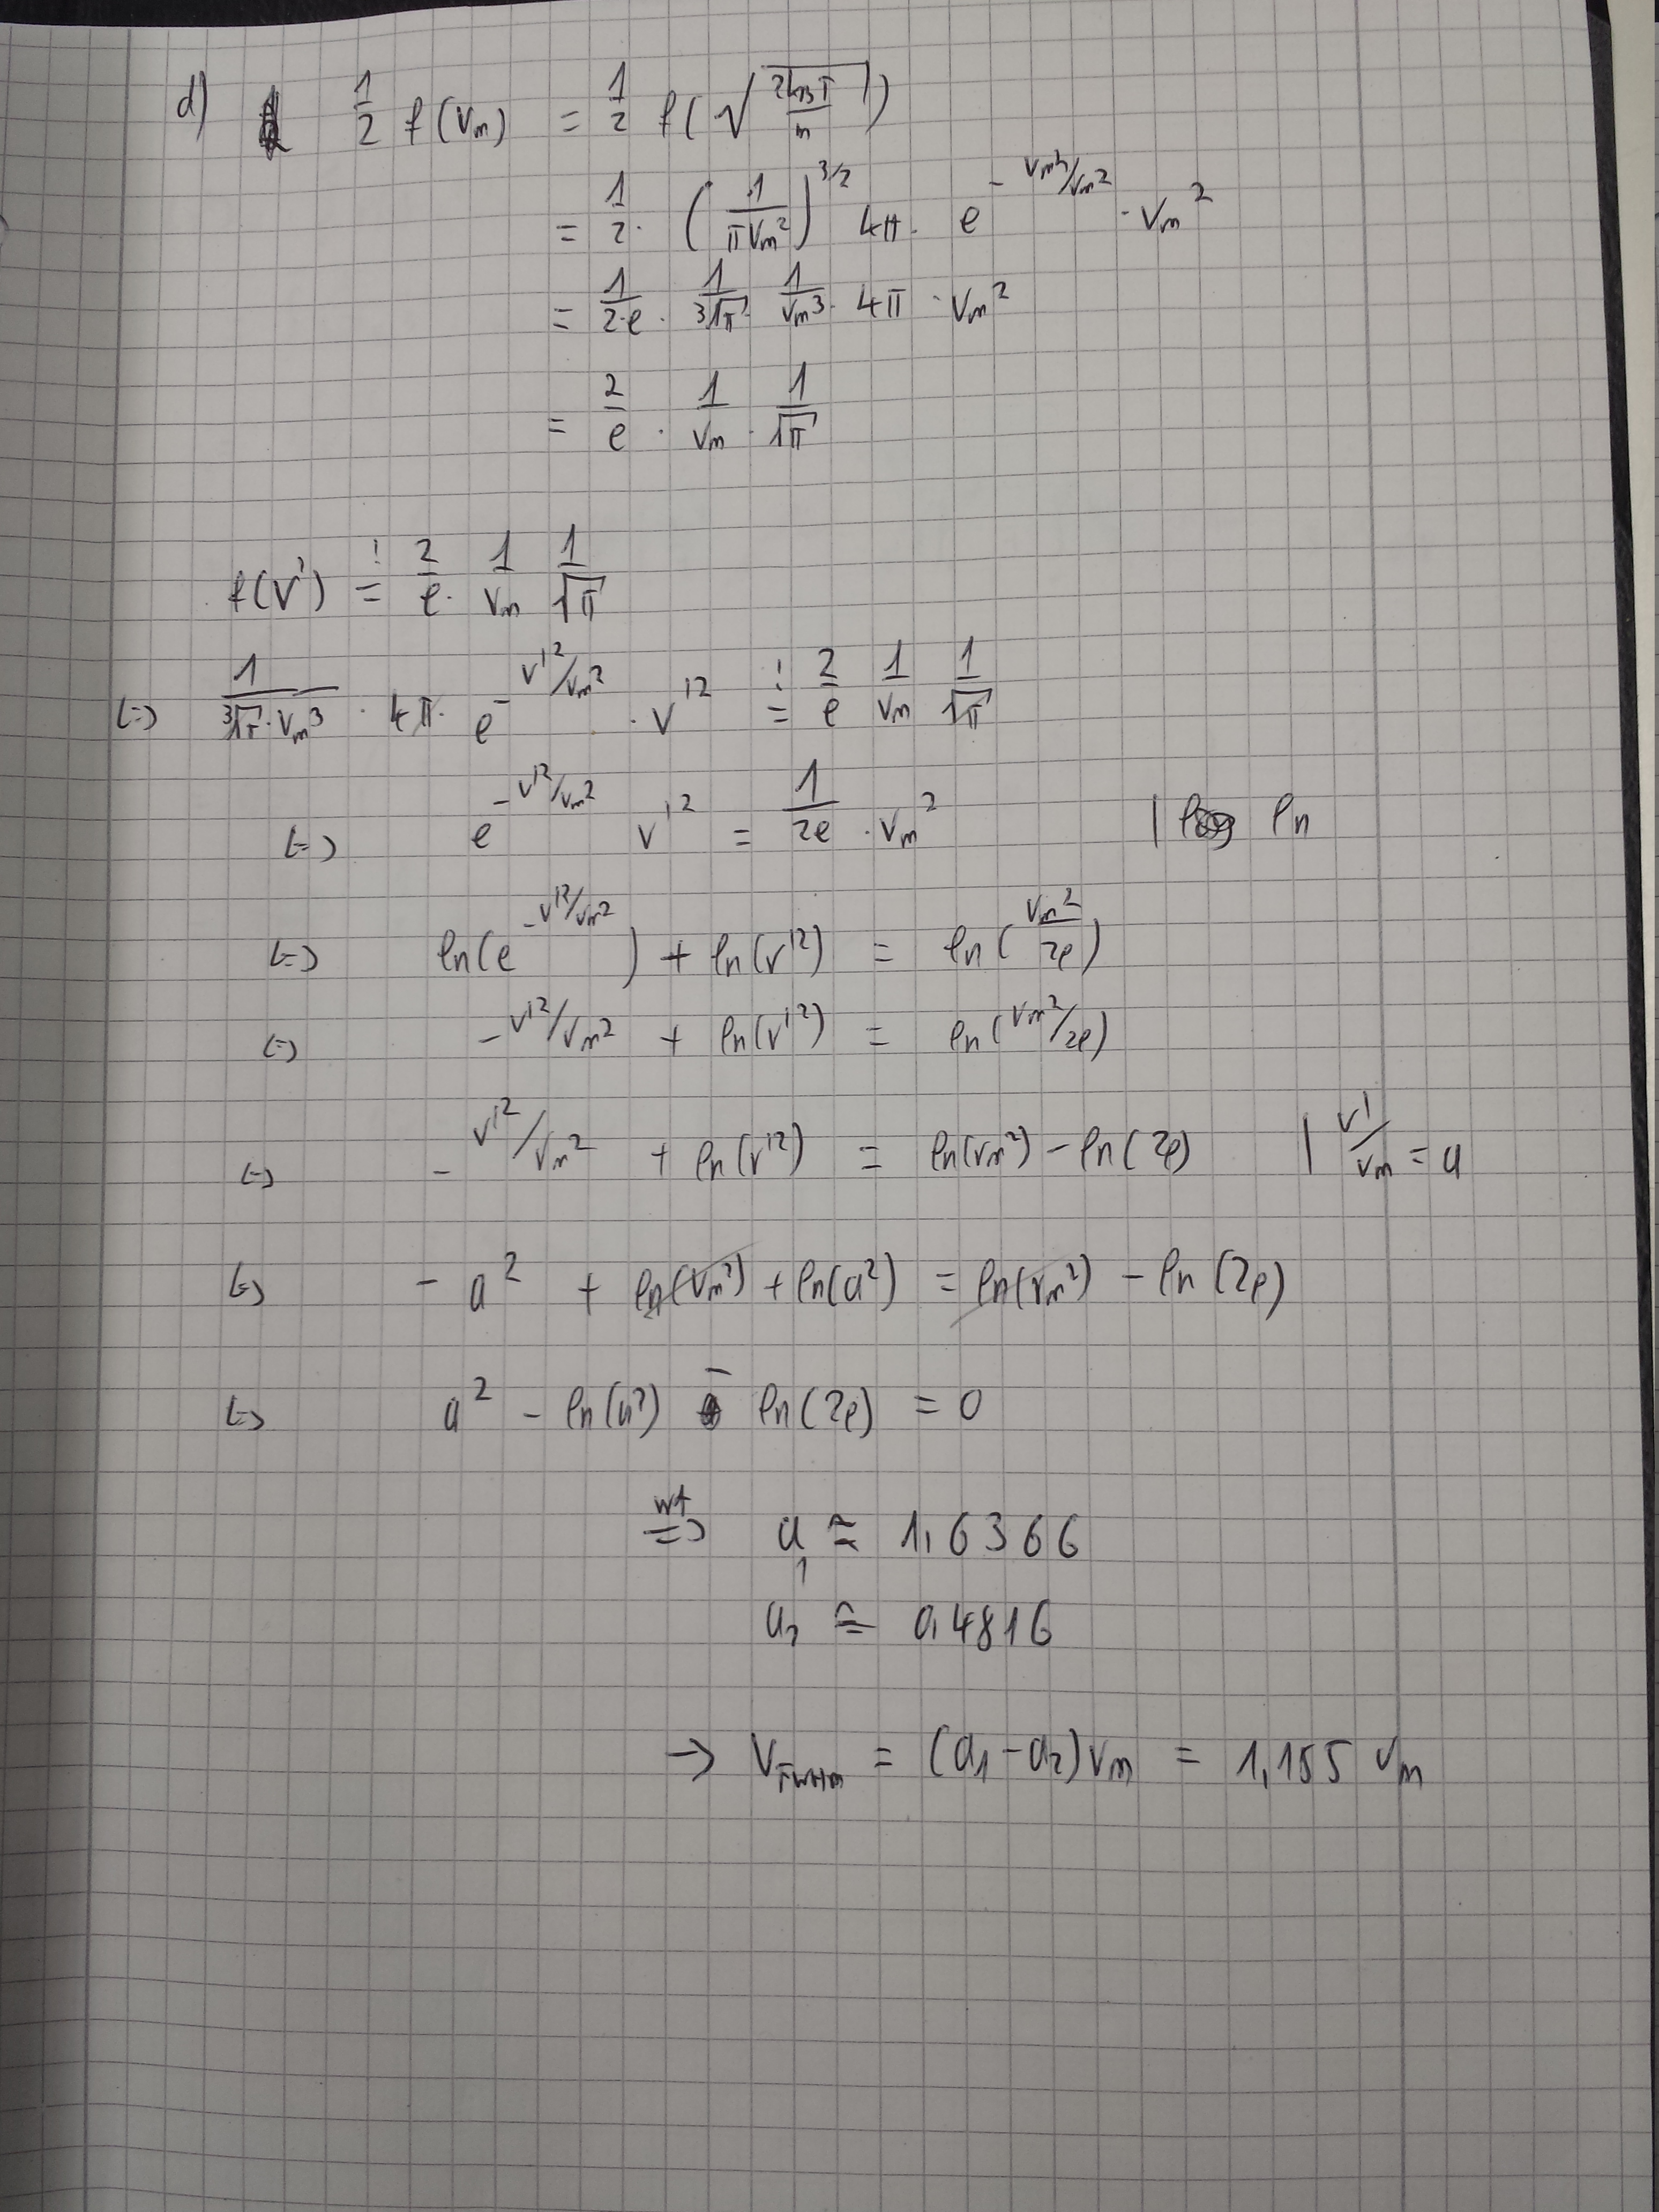 d) 1/2 f(vₘ) = 1/2 f(√(2k_BT/m))
= 1/2 · (1/(πvₘ²))^(3/2) 4π · e^(-vₘ²/vₘ²) · vₘ²
= 1/(2·e) · 1/(³√π) · 1/vₘ³ · 4π · vₘ²
= 2/e · 1/vₘ · 1/√π
f(v') =! 2/e · 1/vₘ 1/√π
(=) 1/(³√π · vₘ³) · 4π · e^(-v'²/vₘ²) · v'² =! 2/e 1/vₘ 1/√π
(=) e^(-v'²/vₘ²) v'² = 1/(2e) · vₘ² | ln
(=) ln(e^(-v'²/vₘ²)) + ln(v'²) = ln(vₘ²/2e)
(=) -v'²/vₘ² + ln(v'²) = ln(vₘ²/2e)
(=) -v'²/vₘ² + ln(v'²) = ln(vₘ²) - ln(2e) | v'/vₘ = a
(=) -a² + ln(vₘ²) + ln(a²) = ln(vₘ²) - ln(2e)
(=) a² - ln(a²) - ln(2e) = 0
=> a₁ ≃ 1,6366
a₂ ≃ 0,4816
→ v_FWHM = (a₁ - a₂)vₘ = 1,155 vₘ